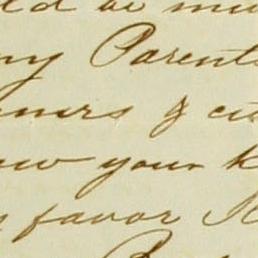 ld be mu
my Parents
ners & cu
ow your k
favor